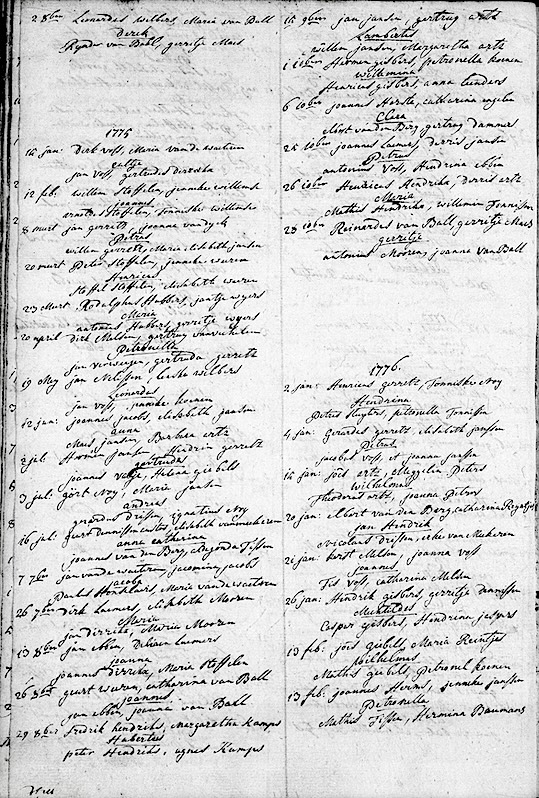 2 8ber Leonardus wilbers Maria van Ball
Derck
Ryndar van Ball, gerritje Maes
1775
14 jan: Dirk voss, Maria vande
jan voss, gertrudis
12 feb. willem Stoffelen, jenneke willemse
joannes
Stoffelen, Tonniske willemse
8 mart jan gerrits, joanna vandyck
Petrus
willem gerrits, Maria elisabeth jansen
20 mart Peter Stoffelen, jenneke wuren
Henricus
Stoffel Stoffelen, elisabeth wuren
23 Mart. Rodolphus Hubbers, jantje wyers
Maria
antonius Hubbers, gerritje wyers
20 april Dirk Melsen, gertruy
Petronella
jan gertruda, gerrits
19 Mey jan Nelissen, wilbers
Leonardus
jan voss, jenneke koenen
12 jun: joannes jacobs, elisabeth jansen
anna
Maes jansen, Barbara ertz
2 jul: Hermen jansen, Hendrin gerretz
gertrudis
joannes Helena giebels
3 jul: gört Noy, Maria jansen
andries
gerardus driessen, ignatius Noy
16 jul: geurt elisabeth
anna catharina
joannes van den Berg, aldegonda Tissen
7 7ber jan vande wateren, jacomina jacobs
jacoba
Paulus Maria vande wateren
26 7ber Dirk Luemers, elisabeth Mooren
Maria
jan Dirricks, Maria Mooren
13 8ber jan ebben, Luemers
joanna
joannes Maria Stoffelen
26 8ber geurt wuren, catharina van Ball
joannes
jan ebben, joanna van Ball
29 8ber Fredrik hendriks, Margaretha Kamps
Hubertus
peter Hendriks, agnes Kamps
14 9ber jan jansen, gertruy artz
Lambertus
willem jansen, Margaretha artz
1 10ber Hermen gisbers, petronella koenen
wilhelmina
Henricus gisbers, anna leenders
6 10ber joannes Horste, catharina engelen
Clara
Albert vanden Berg, gertruy Dammers
25 10ber joannes Luemers, derris jansen
Petrus
antonius voss, Hendrina ebben
26 10ber Henricus Hendriks, derris artz
Maria
Mathis Hendriks, willemin Tonnissen
28 10ber Reinerdus van Ball, gerritje Maes
gerritje
antonius Mooren, joanna van Ball
1776.
2 jan: Henricus gerretz, Tonniske Noy
Hendrina
Petrus Kuyters, petronella Tonnissen
4 jan: gerardus gerretz, elisabeth janssen
Petrus
jacobus voss, et joanna janssen
14 jan: joes ertz, Maggelin Peters
wilhelmus
Theodorus ertz, joanna Peters
20 jan: Albert van den Berg, catharina
jan Hendrik
Nicolaus Driessen, erke van
21 jan: kerst Melsen, joanna voss
joannes
Tis voss, catharina Melsen
26 jan: Hendrik gisbers, gerritje
Mechtildis
Casper gisbers, Hendrina jaspers
13 feb: joes giebels, Maria Reintjes
wilhelmus
Mathis giebels, Petronel koenen
13 feb: joannes Herms, jenneke janssen
Petronella
Mathis Tissen, Hermina Baumans